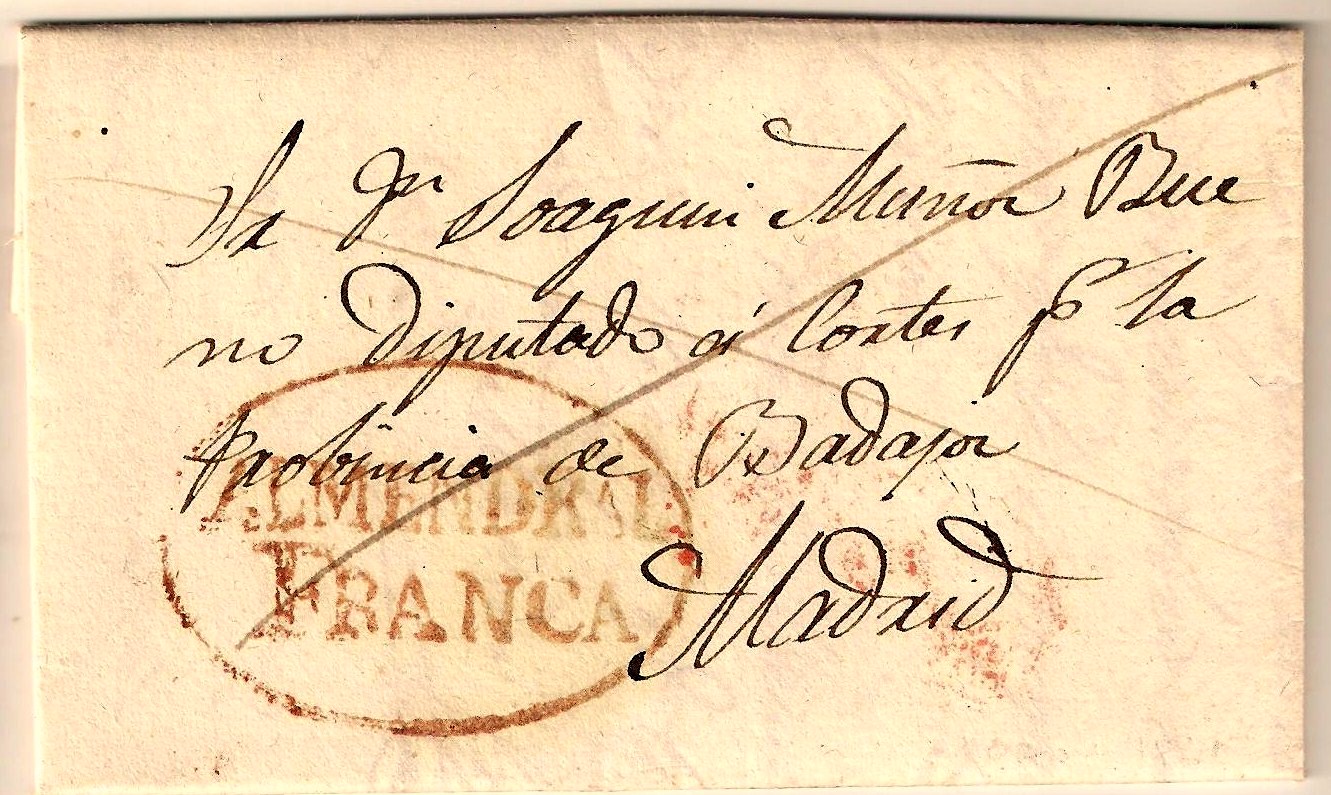 Sr Dn Joaquin Muñoz Bue
no Diputado á Cortes pr la
Probincia de Badajoz
Madrid
ALMENDRAL
FRANCA